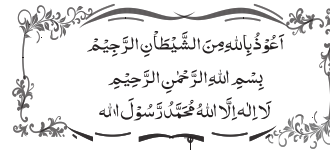 اَعُوْذُ بِاللهِ مِنَ الشَّيْطَانِ الرَّجِيْمِ
بِسْمِ اللهِ الرَّحْمٰنِ الرَّحِيْمِ
لَا اِلٰهَ اِلَّا اللهُ مُحَمَّدُ رَّسُوْلَ الله